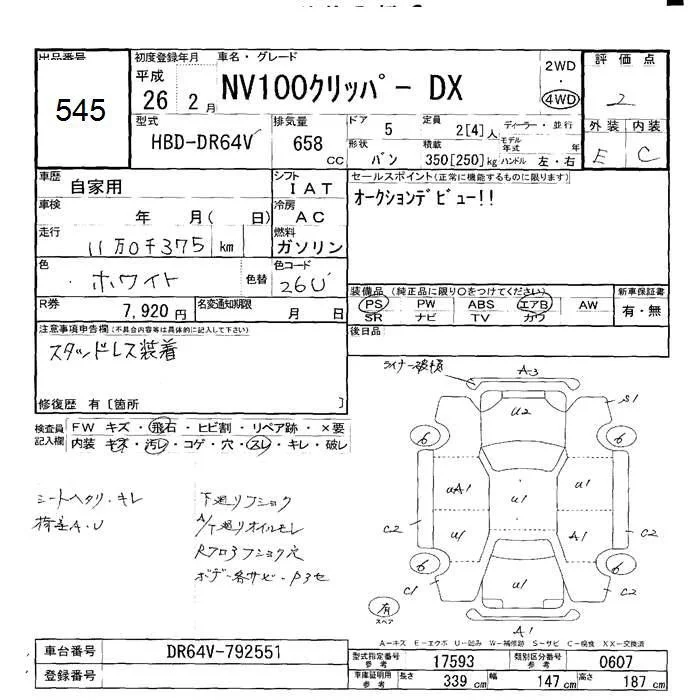 出品番号 初度登録年月 車名・グレード 評価点
545
平成 26年 2月
NV100クリッパー DX
2WD
・
4WD
2
型式 排気量 ドア 5 定員 2[4]人 ディーラー・並行 外装 内装
HBD-DR64V 658 CC
形状 バン 積載 350[250]kg モデル年式 年 ハンドル 左・右
E C
車歴 自家用 シフト IAT
セールスポイント(正常に機能するものに限ります)
オークションデビュー!!
車検 年 月( 日) 冷房 AC
走行 11万0千375 km 燃料 ガソリン
色 ホワイト 色替 色コード 26U
装備品 (純正品に限り○をつけてください) 新車保証書
PS PW ABS エアB AW
SR ナビ TV カワ
有・無
R券 7,920円 名変通知期限 月 日
後日品
注意事項申告欄(不具合内容等は具体的に記入して下さい)
スタッドレス装着
修復歴 有[箇所 ]
検査員記入欄
FW キズ・飛石・ヒビ割・リペア跡・×要
内装 キズ・汚レ・コゲ・穴・スレ・キレ・破レ
シートヘタリ・キレ
荷室A.U
下廻リフショク
A/T廻リオイルモレ
Rフロアフショク穴
ボデー各サビ・
ライナー破損
A-3
U2
S1
6 6
uA1 u1 u1
C2 u1 A1 C2
6 6
C1 u1 C2
有
スペア
A1
A-キズ E-エクボ U-凹み W-補修跡 S-サビ C-腐食 XX-交換済
車台番号 DR64V-792551
登録番号
型式指定番号 参考 17593 類別区分番号 参考 0607
車庫証明用 参考 長さ 339 cm 幅 147 cm 高さ 187 cm